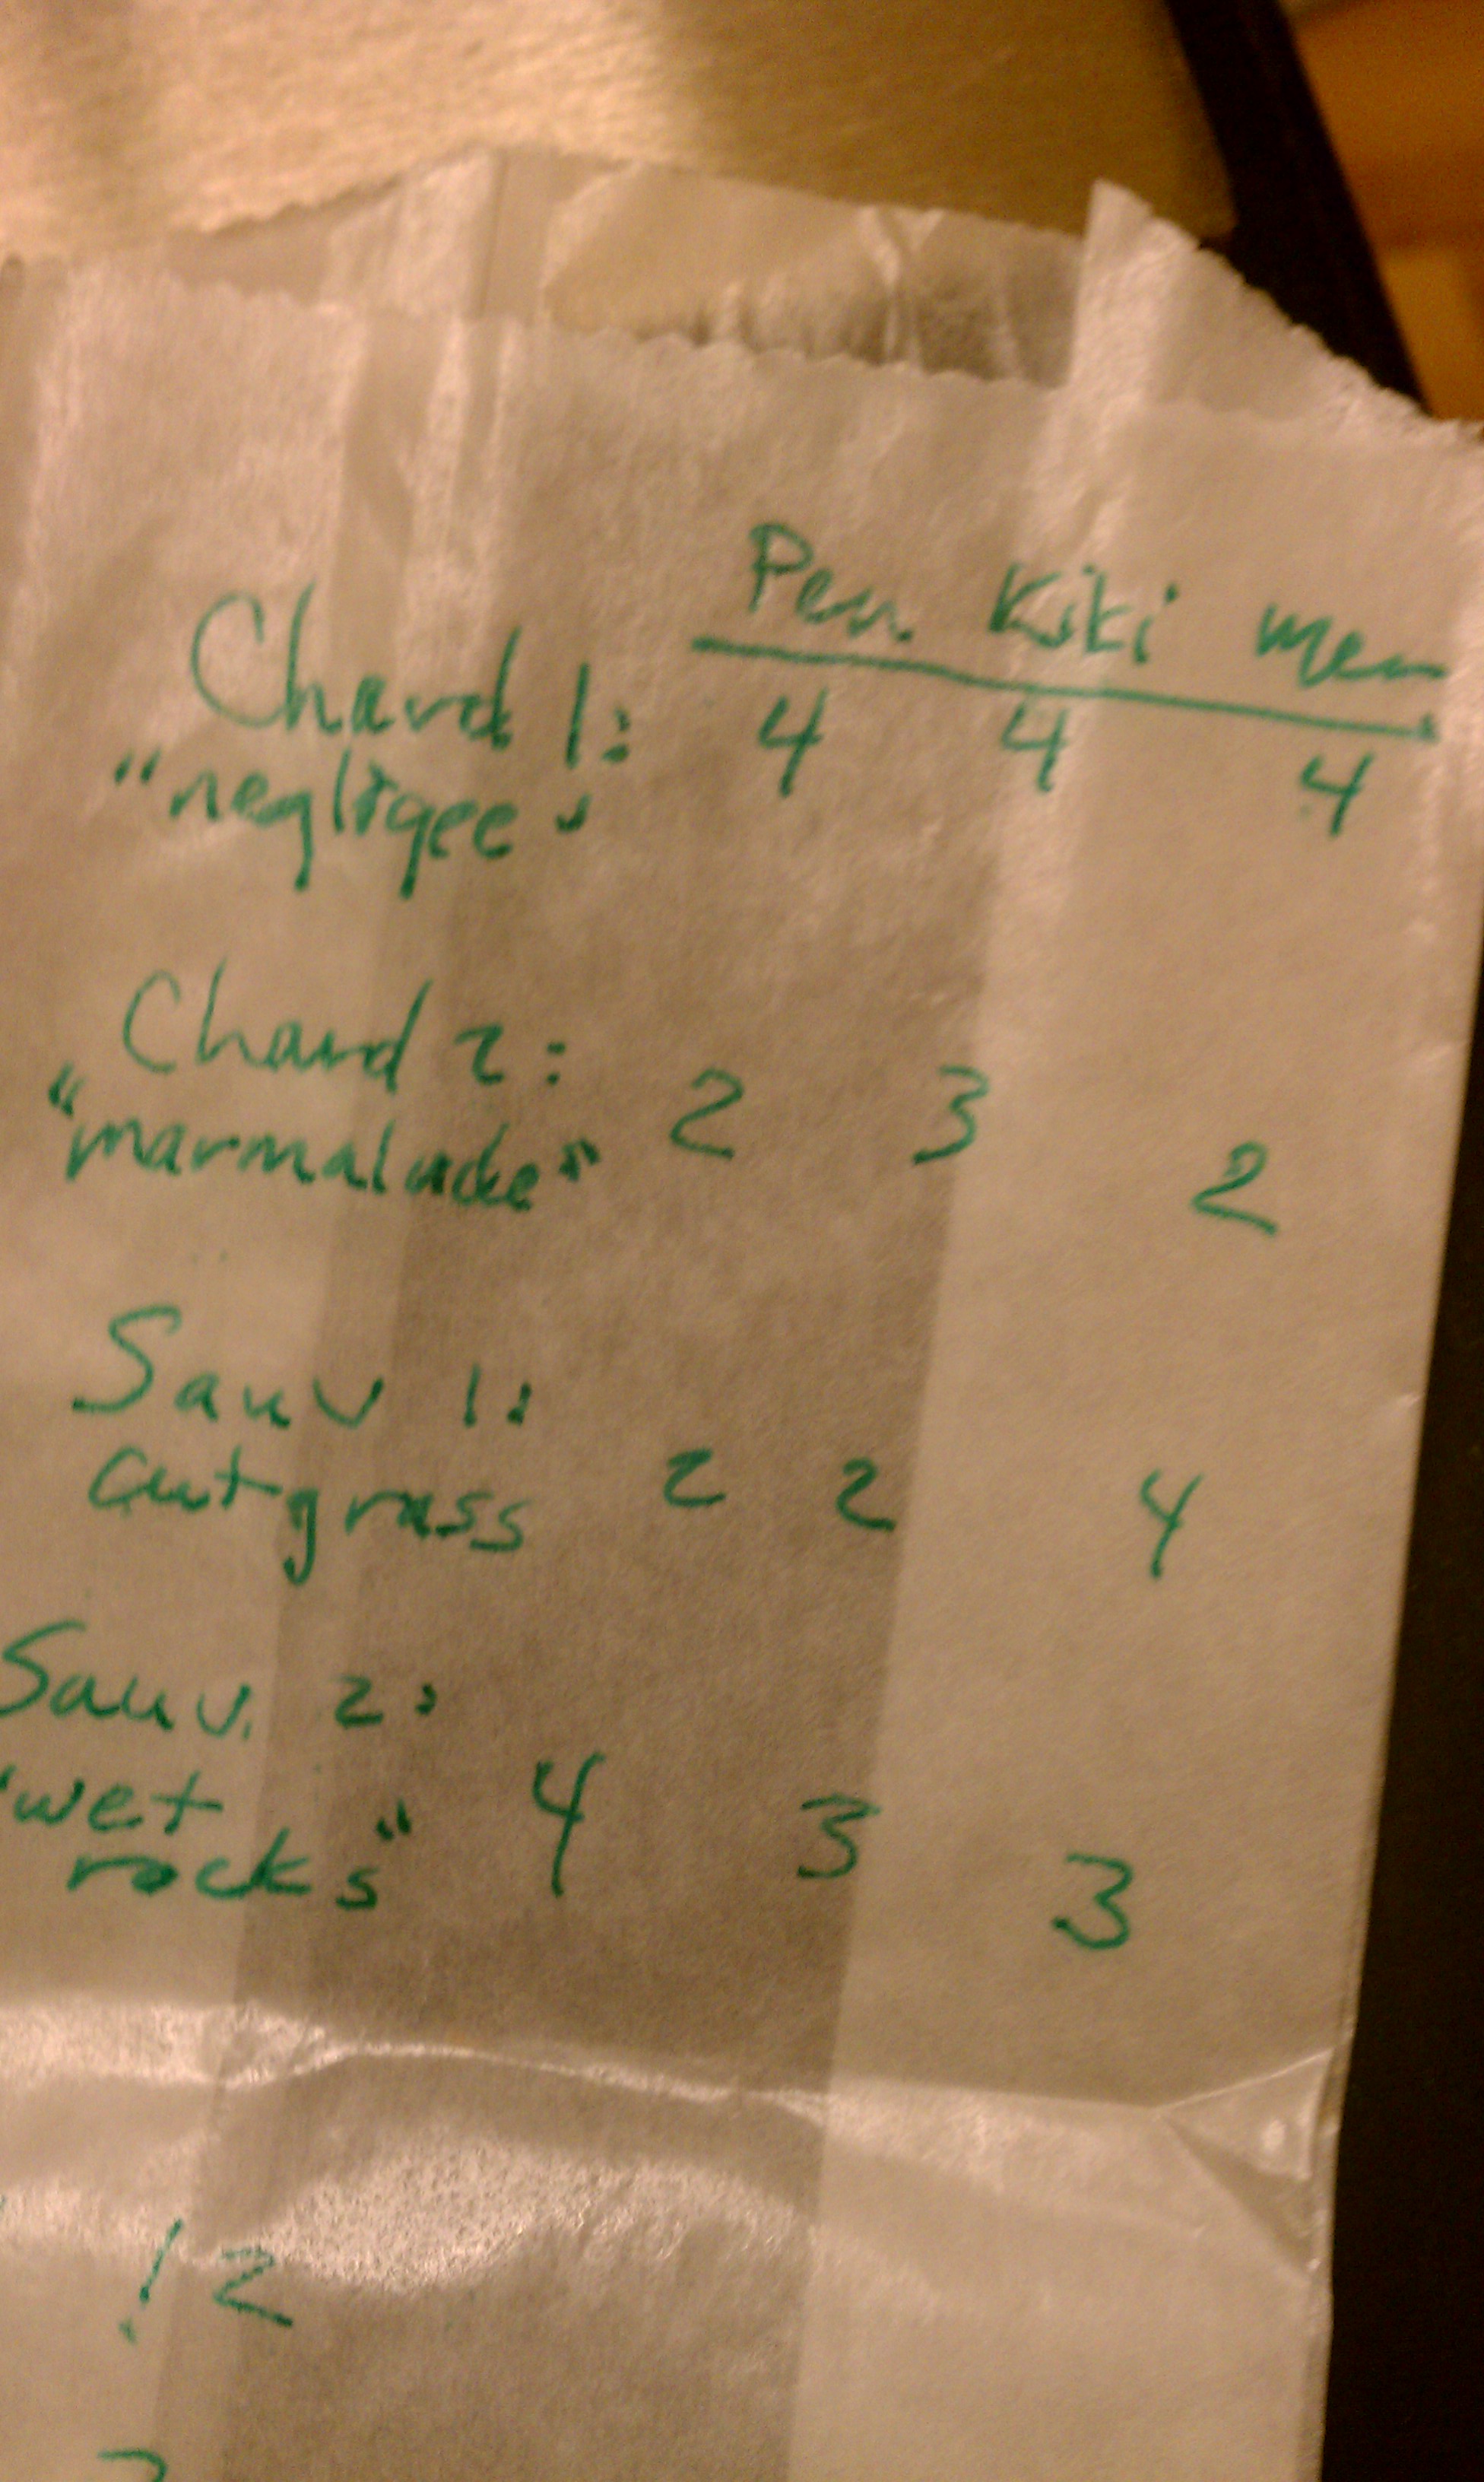 Pen Kiki Mer
Chard 1: 4 4 4
"negligee"
Chard 2: 2 3 2
"marmalade"
Sauv 1:
cutgrass 2 2 4
Sauv. 2:
"wet 4 3 3
rocks"
! 2